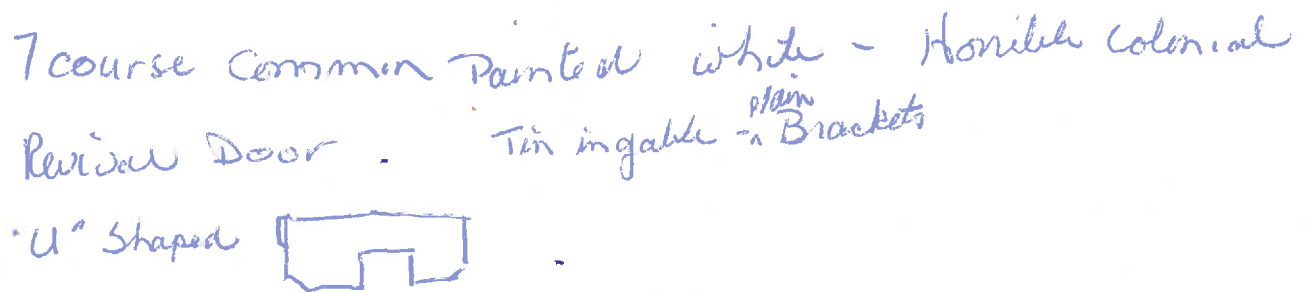 7 course Common Painted white - Horrible Colonial
Revival Door. Tin in gable - plain Brackets
"U" Shaped